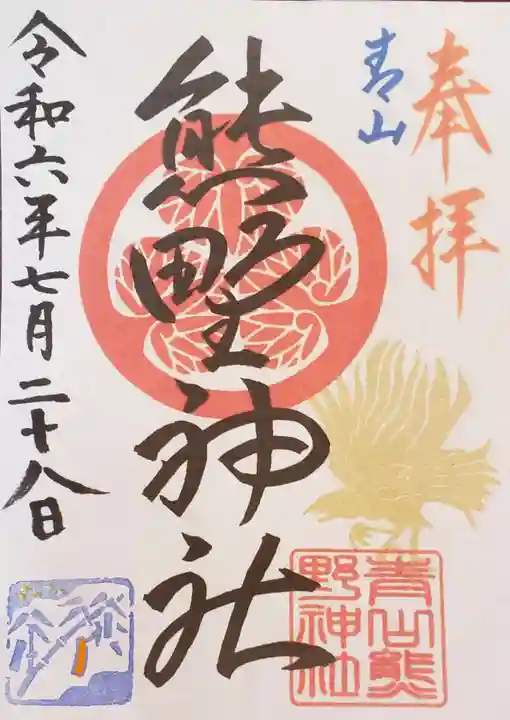 奉拝
青山
熊野神社
令和六年七月二十八日
青山熊
野神社